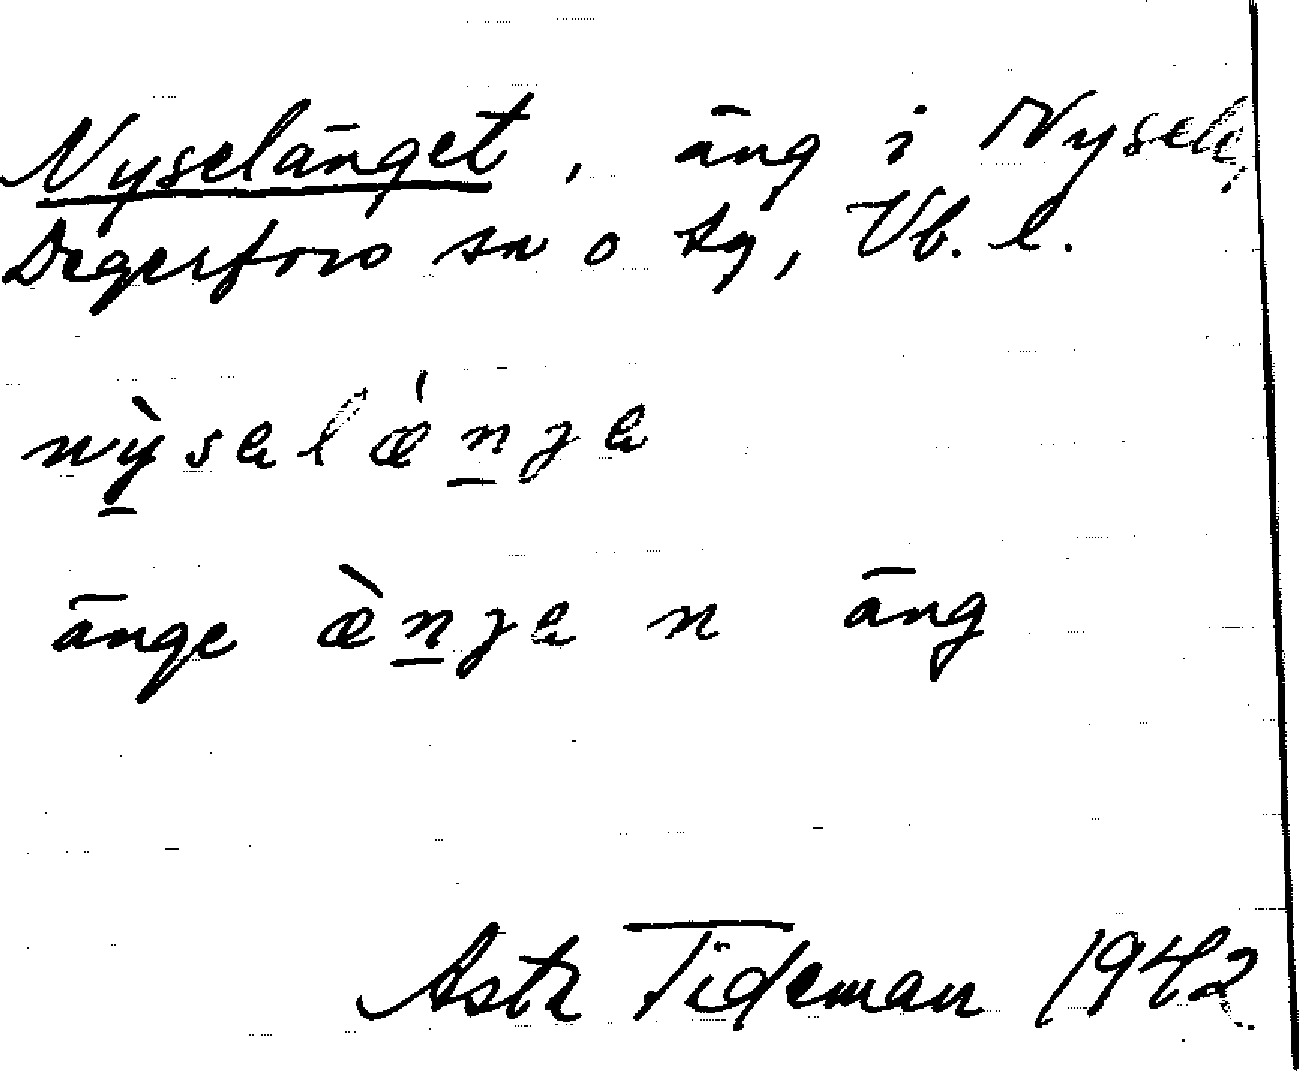 Nyselänget, äng i Nysele,
Degerfors sn o tg, Vb. l.
nỳsalǽnʒa
änge æ̀nʒa n äng
Astr Tideman 1942